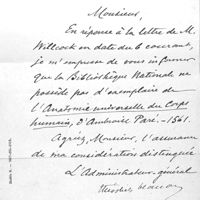 Monsieur,
En réponse à la lettre de M.
Willcock en date du 6 courant,
je m'empresse de vous informer
que la Bibliothèque Nationale ne
possède pas d'exemplaire de
l'Anatomie universelle du Corps
humain, d'Ambroise Paré. - 1561.
Agréez, Monsieur, l'assurance
de ma considération distinguée
L'Administrateur général